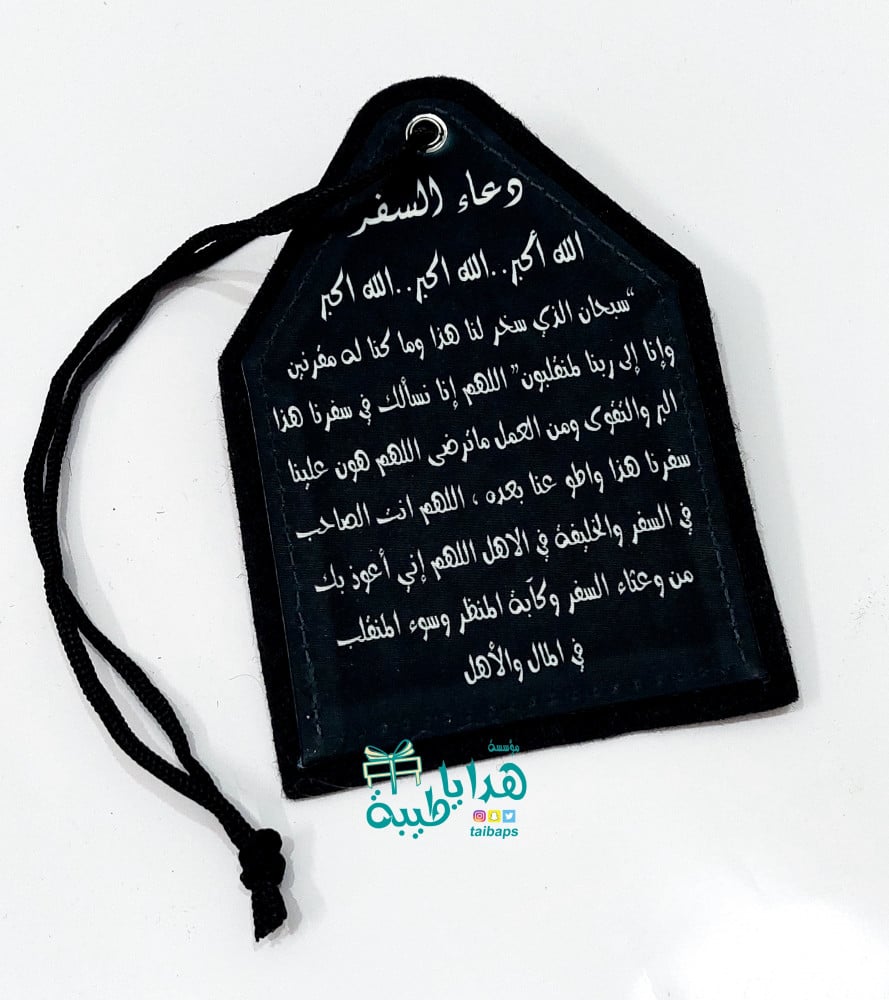 دعاء السفر
الله أكبر..الله اكبر..الله اكبر
“سبحان الذي سخر لنا هذا وما كنا له مقرنين
وإنا إلى ربنا لمنقلبون” اللهم إنا نسألك في سفرنا هذا
البر والتقوى ومن العمل ماترضى اللهم هون علينا
سفرنا هذا واطو عنا بعده ، اللهم انت الصاحب
في السفر والخليفة في الاهل اللهم إني أعوذ بك
من وعثاء السفر وكآبة المنظر وسوء المنقلب
في المال والأهل
مؤسسة
هدايا
طيبة
taibaps